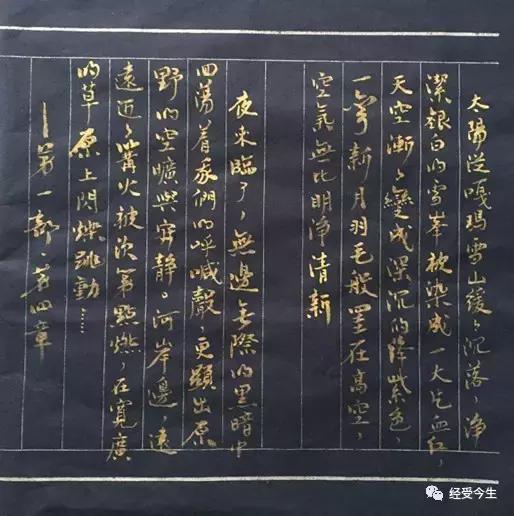 太陽從嘎瑪雪山緩々沉落，淨
潔銀白的雪峯被染成一大片血红，
天空漸々變成深沉的绛紫色，
一弯新月羽毛般罣在高空，
空氣無比明净清新
夜来臨了，無邊無際的黑暗中
回蕩着孩們的呼喊聲，更顯出原
野的空曠與寂静。河岸邊、遠
遠近々篝火被次第點燃，在寬廣
的草原上閃爍跳動……
—第一部、第四章
经受今生